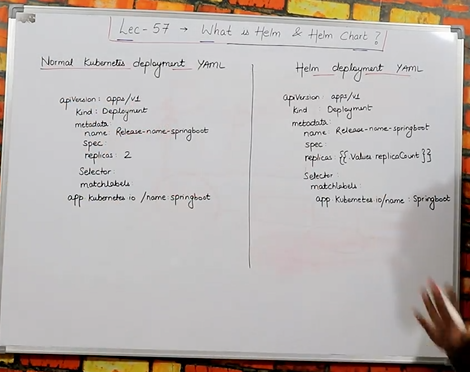 Lec-57 → What is Helm & Helm Chart?
Normal Kubernetes deployment YAML
apiVersion: apps/v1
Kind: Deployment
metadata
name Release-name-springboot
spec
replicas 2
Selector:
matchlabels
app Kubernetes io /name: springboot
Helm deployment YAML
apiVersion: apps/v1
Kind: Deployment
metadata:
name Release-name-springboot
spec:
replicas {{.Values replicaCount}}
Selector:
matchlabels:
app Kubernetes io/name: Springboot